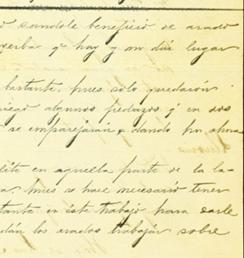 sandole beneficio de arado
yerba qe hay y en dús lugar
bastante, pues solo quedarán
algunos pedazos y en sos
se emparejarán dando fin
en aquella parte de la la-
pues se hace necesario tener
tante en éste trabajo para darle
los arados trabajar sobre